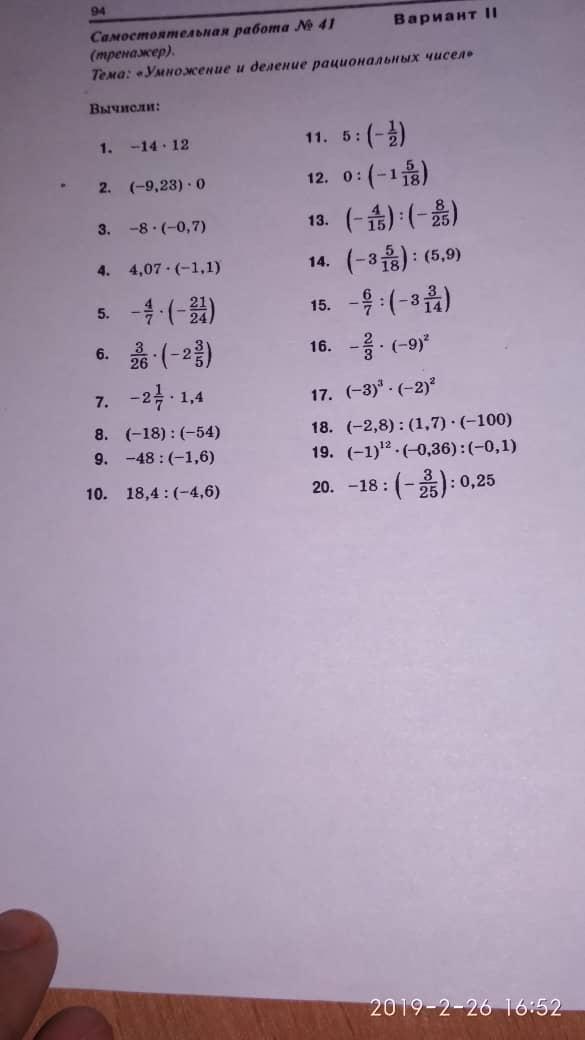 94
Самостоятельная работа № 41 Вариант II
(тренажер).
Тема: «Умножение и деление рациональных чисел»
Вычисли:
1. −14 · 12
2. (−9,23) · 0
3. −8 · (−0,7)
4. 4,07 · (−1,1)
5. −4/7 · (−21/24)
6. 3/26 · (−2 3/5)
7. −2 1/7 · 1,4
8. (−18) : (−54)
9. −48 : (−1,6)
10. 18,4 : (−4,6)
11. 5 : (−1/2)
12. 0 : (−1 5/18)
13. (−4/15) : (−8/25)
14. (−3 5/18) : (5,9)
15. −6/7 : (−3 3/14)
16. −2/3 · (−9)²
17. (−3)³ · (−2)²
18. (−2,8) : (1,7) · (−100)
19. (−1)¹² · (−0,36) : (−0,1)
20. −18 : (−3/25) : 0,25
2019-2-26 16:52